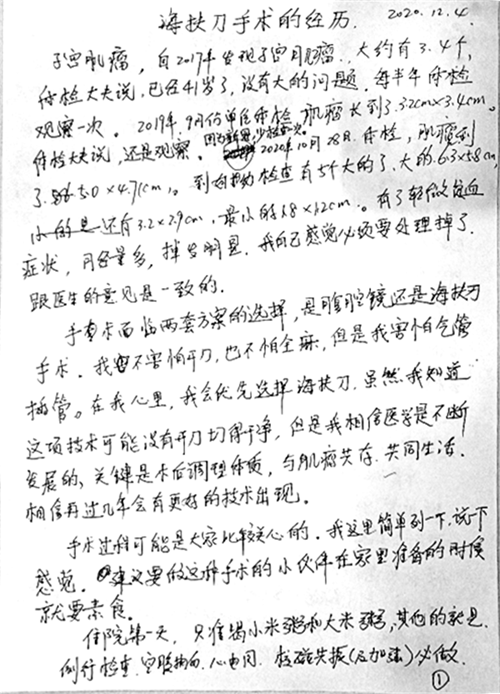 海扶刀手术的经历. 2020.12.4.
子宫肌瘤,自2017年发现子宫肌瘤.大约有3.4个,
体检大夫说,已经41岁了,没有大的问题.每半年体检
观察一次。2019年9月份单位体检 肌瘤长到3.32cm×3.4cm。
体检大夫说,还是观察。
2020年10月28日.体检,肌瘤到
5.0×4.71cm。到 检查有5个大的了.大的6.3×5.8cm,
小的是还有3.2×2.9cm.最小的1.8×1.2cm。有了轻微贫血
症状,月经量多,掉发明显.我自己感觉必须要处理掉了.
跟医生的意见是一致的.
手术面临两套方案的选择,是腹腔镜还是海扶刀
手术.我不害怕开刀,也不怕全麻,但是我害怕气管
插管。在我心里,我会优先选择海扶刀.虽然我知道
这项技术可能没有开刀切得干净,但是我相信医学是不断
发展的、关键是术后调理体质,与肌瘤共存.共同生活.
相信再过几年会有更好的技术出现。
手术过程可能是大家比较关心的.我这里简单列一下.说下
感觉.建议要做这种手术的小伙伴在家里准备的时候
就要素食。
住院第一天,只准喝小米粥和大米粥,其他的就是
例行检查.空腹抽血.心电图.核磁共振(应加强)必做.
①